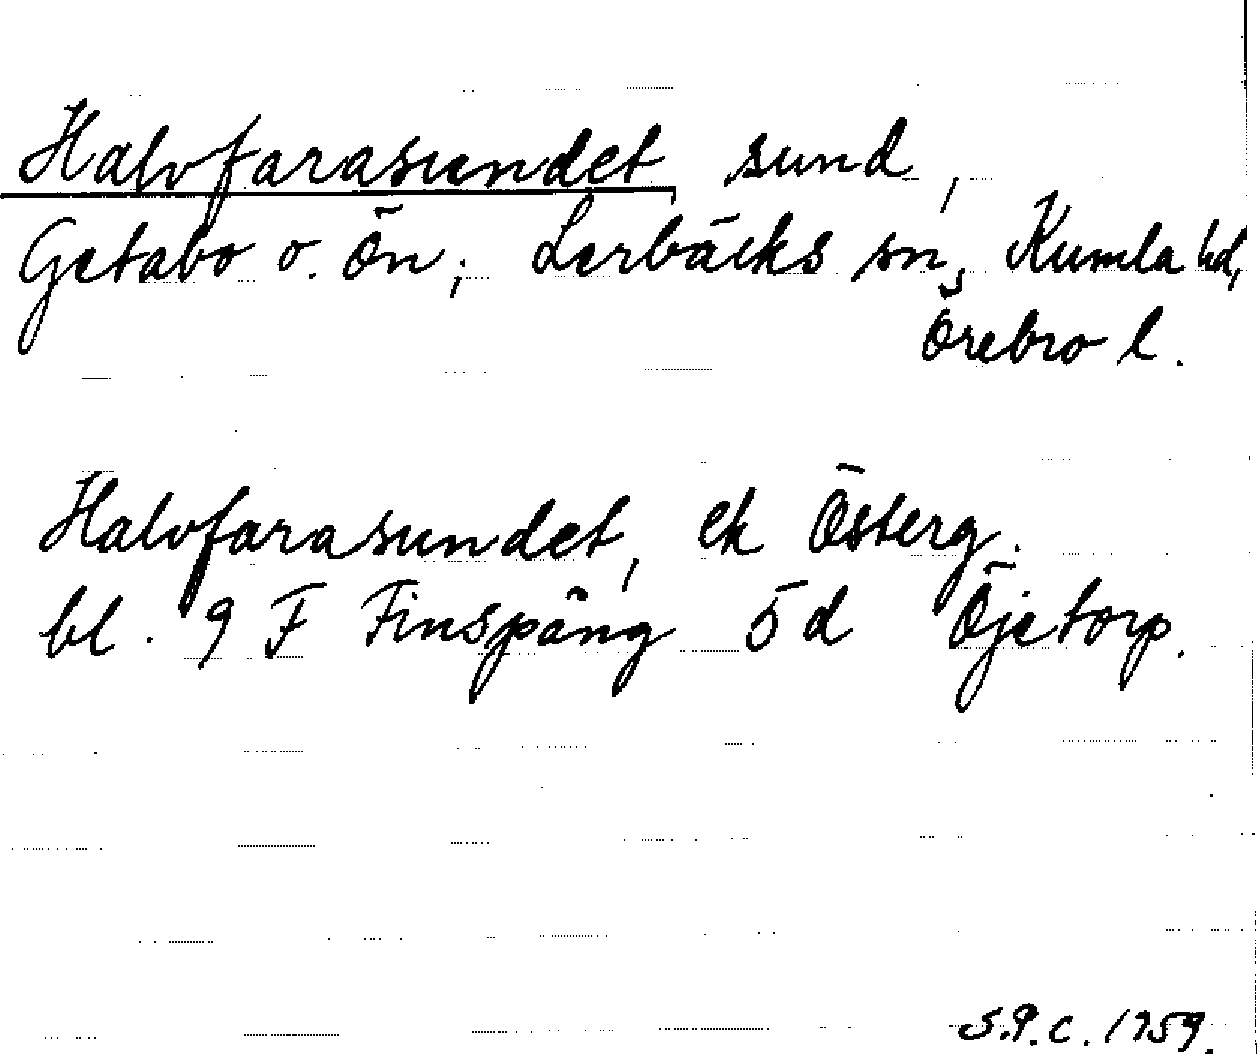 Halvfarasundet, sund,
Getabo o. Ön; Lerbäcks sn, Kumla hd,
Örebro l.
Halvfarasundet, ek Österg.
bl. 9 F Finspång 5 d Öjetorp.
S.P.C. 1959.